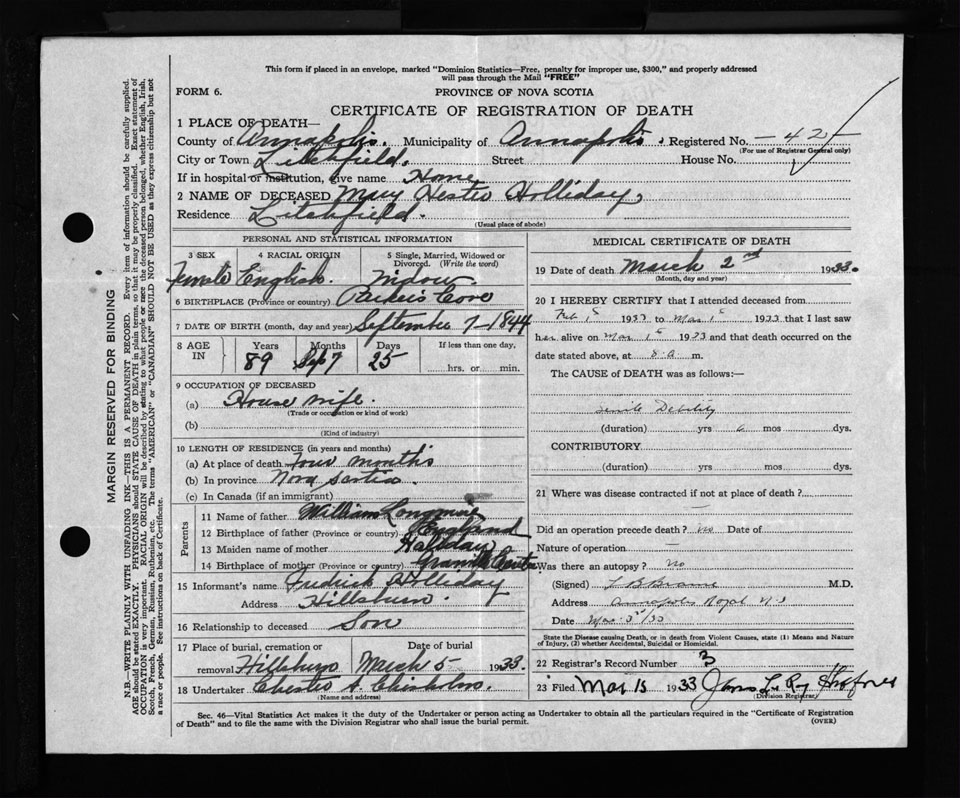 This form if placed in an envelope, marked "Dominion Statistics—Free, penalty for improper use, $300," and properly addressed
will pass through the Mail "FREE"
FORM 6.
PROVINCE OF NOVA SCOTIA
CERTIFICATE OF REGISTRATION OF DEATH
1 PLACE OF DEATH—
County of Annapolis. Municipality of Annapolis. Registered No. —42—
(For use of Registrar General only)
City or Town Litchfield. Street House No.
If in hospital or institution, give name Home
2 NAME OF DECEASED Mary Hester Holliday,
Residence Litchfield.
(Usual place of abode)
PERSONAL AND STATISTICAL INFORMATION
3 SEX 4 RACIAL ORIGIN 5 Single, Married, Widowed or Divorced. (Write the word)
Female English. Widow
6 BIRTHPLACE (Province or country) Parker's Cove
7 DATE OF BIRTH (month, day and year) September 7—1844
8 AGE IN Years Months Days If less than one day,
89 Sep 7 25 hrs. or min.
9 OCCUPATION OF DECEASED
(a) House wife.
(Trade or occupation or kind of work)
(b)
(Kind of industry)
10 LENGTH OF RESIDENCE (in years and months)
(a) At place of death four months
(b) In province Nova Scotia.
(c) In Canada (if an immigrant)
Parents
11 Name of father William Longmire
12 Birthplace of father (Province or country) England
13 Maiden name of mother Halliday
14 Birthplace of mother (Province or country)
15 Informant's name Fredrick Holliday
Address Hillsburn.
16 Relationship to deceased Son
17 Place of burial, cremation or removal Hillsburn Date of burial March 5 1933.
18 Undertaker Chester A. Chisholm.
(Name and address)
MEDICAL CERTIFICATE OF DEATH
19 Date of death March 2nd 1933.
(Month, day and year)
20 I HEREBY CERTIFY that I attended deceased from
Feb 1st 1933 to Mar 1st 1933 that I last saw
her alive on Mar 1st 1933 and that death occurred on the
date stated above, at 8. a m.
The CAUSE of DEATH was as follows:—
Senile Debility
(duration) yrs 6 mos dys.
CONTRIBUTORY.
(duration) yrs. mos. dys.
21 Where was disease contracted if not at place of death?
—
Did an operation precede death? no Date of
Nature of operation —
Was there an autopsy? No
(Signed) M.D.
Address Annapolis Royal N.S
Date Mar 3rd/33
State the Disease causing Death, or in death from Violent Causes, state (1) Means and Nature
of Injury, (2) whether Accidental, Suicidal or Homicidal.
22 Registrar's Record Number 3
23 Filed Mar 15 1933
(Division Registrar)
Sec. 46—Vital Statistics Act makes it the duty of the Undertaker or person acting as Undertaker to obtain all the particulars required in the "Certificate of Registration
of Death" and to file the same with the Division Registrar who shall issue the burial permit. (OVER)
MARGIN RESERVED FOR BINDING
N.B.—WRITE PLAINLY WITH UNFADING INK—THIS IS A PERMANENT RECORD. Every item of information should be carefully supplied.
AGE should be stated EXACTLY. PHYSICIANS should STATE CAUSE OF DEATH in plain terms, so that it may be properly classified. Exact statement of
OCCUPATION is very important. RACIAL ORIGIN will be described by stating to what people or race the deceased person belonged, whether English, Irish,
Scotch, French, German, Russian, Ruthenian, etc. The terms "AMERICAN" or "CANADIAN" SHOULD NOT BE USED as they express citizenship but not
a race or people. See instructions on back of Certificate.